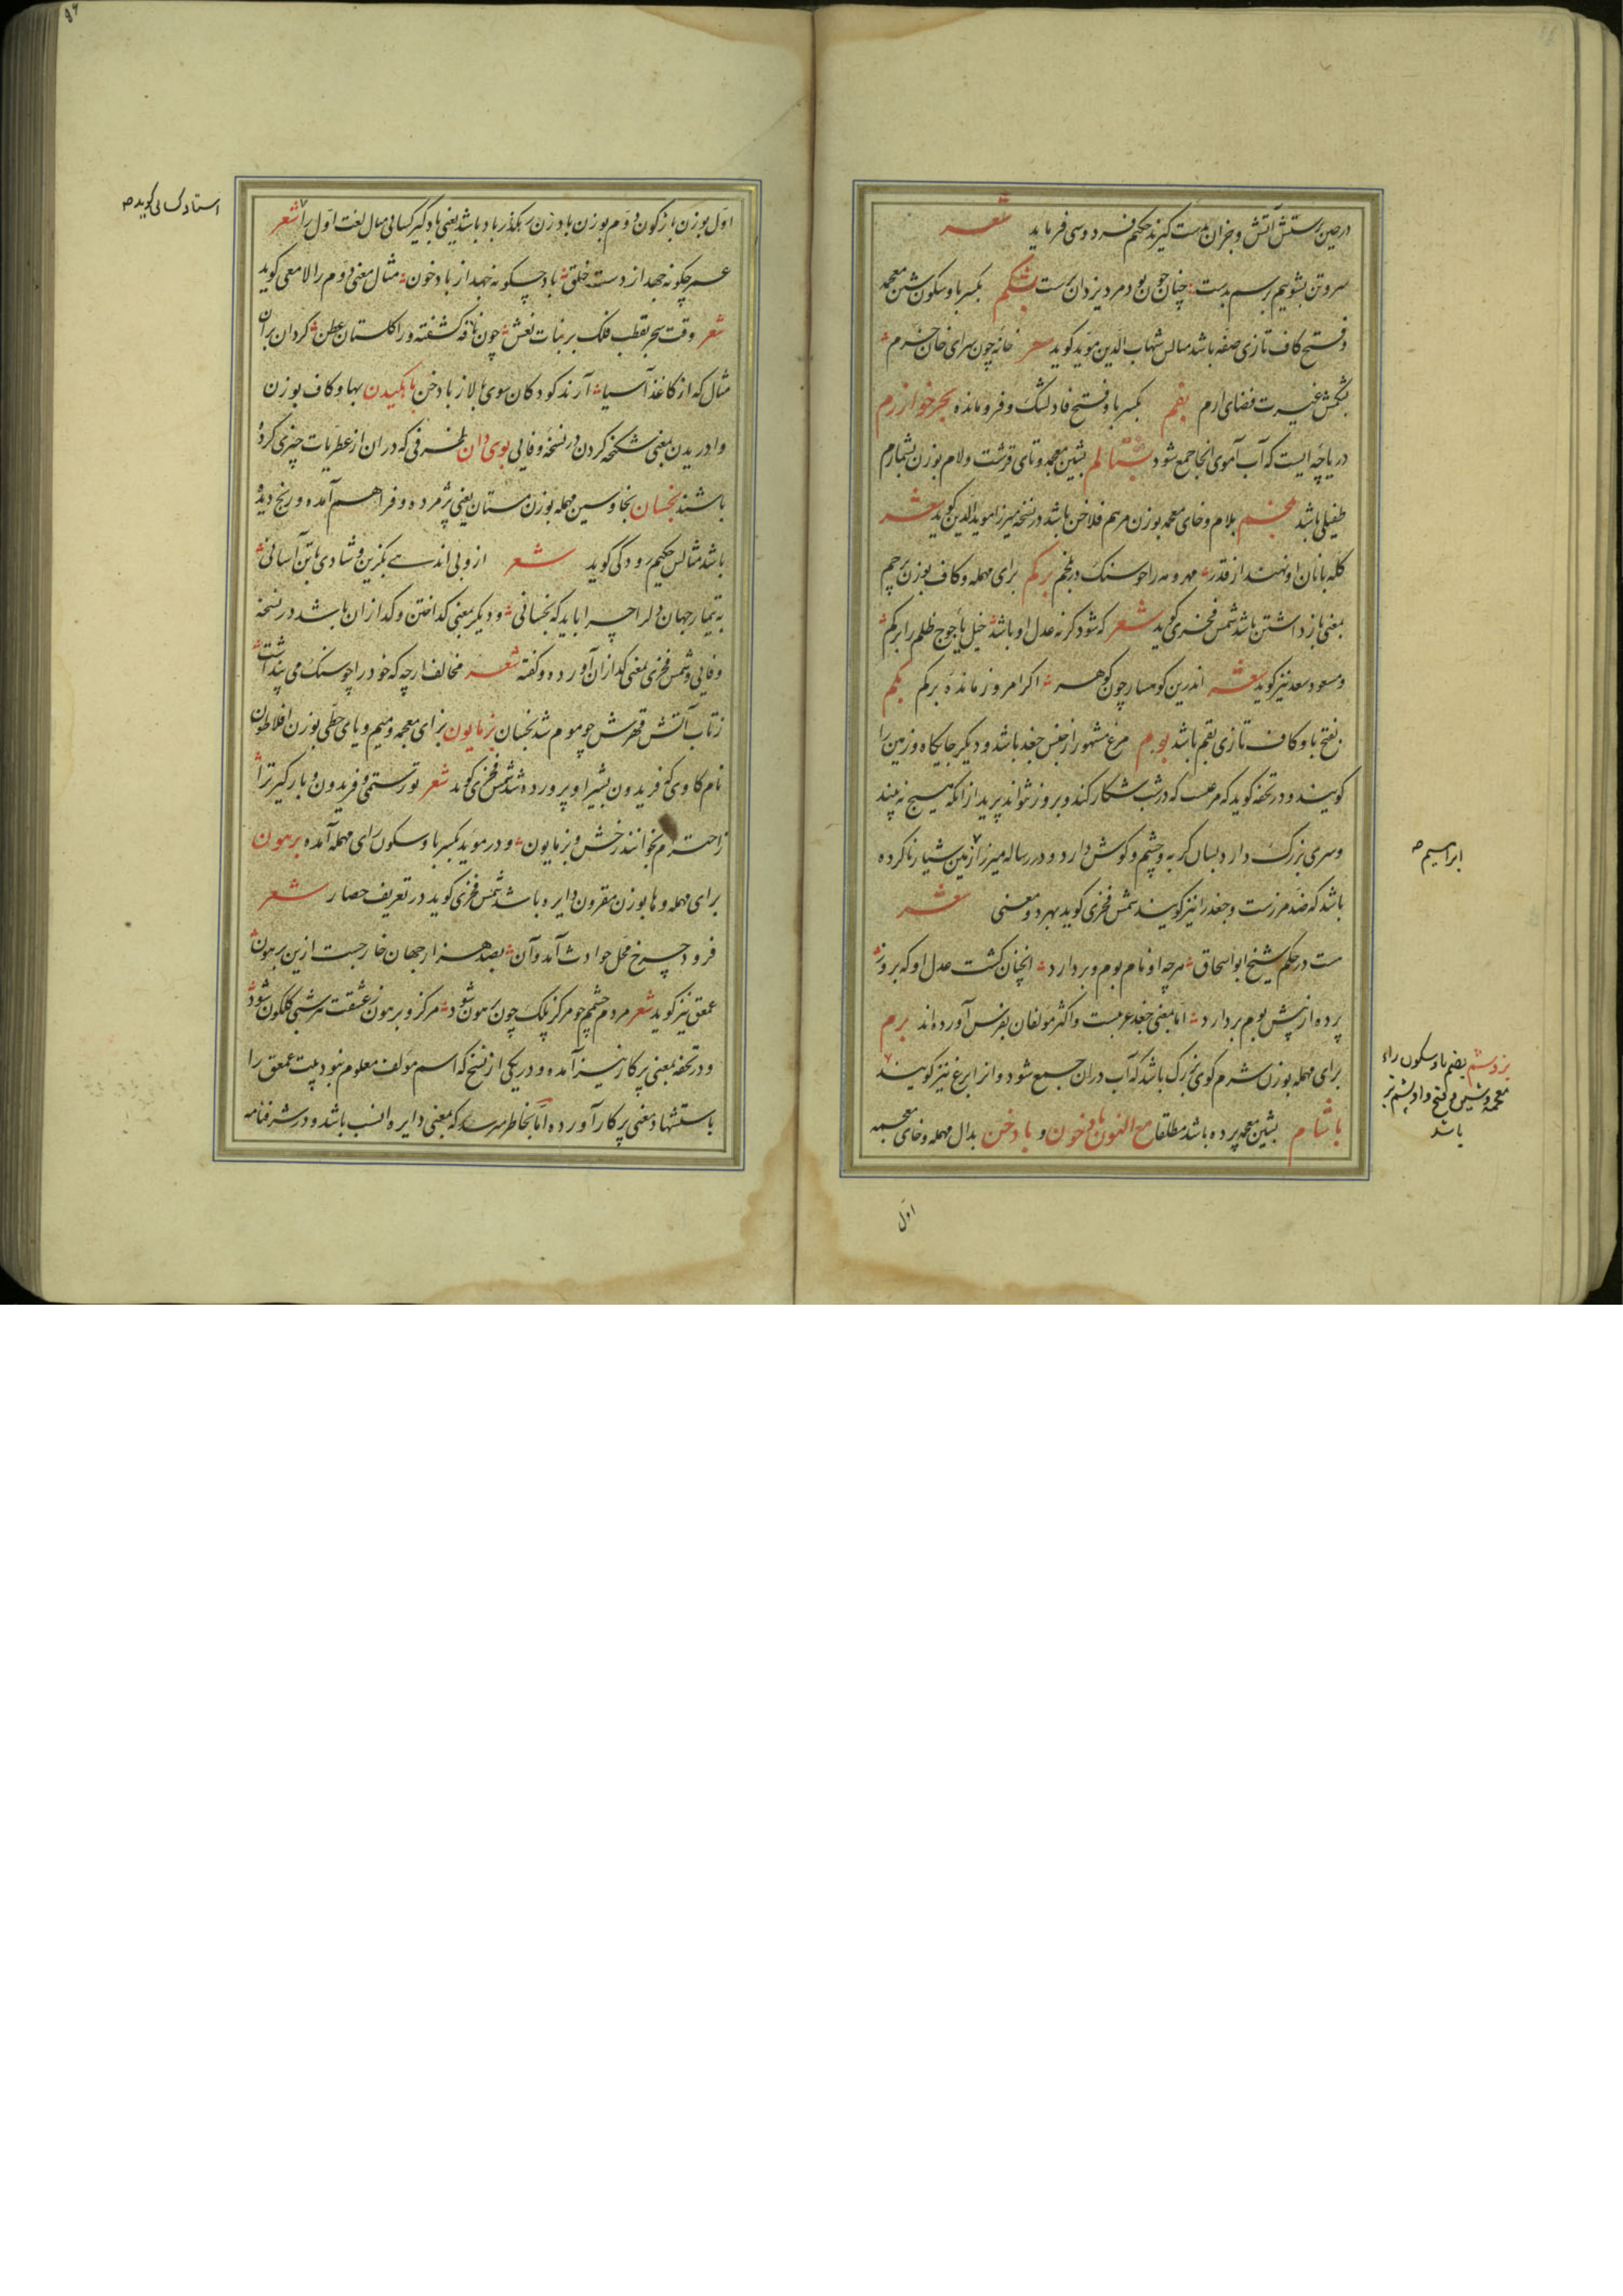 درحین پرستش آتش و جزان بدست گیرند حکیم فردوسی فرماید شعر
سروتن بشوییم برسم بدست چنان چون بود مرد یزدان پرست بشکم بکسر با و سکون شین معجمه
و فتح کاف تازی صفه باشد مثالش شهاب الدین موید گوید شعر خانه چون سرای خان خرم
بشکمش غیرت فضای ارم بفم بکسر با و فتح فا دلتنگ و فرومانده بحر خوارزم
دریاچه ایست که آب آموی انجا جمع شود بشتالم بشین معجمه و تای قرشت و لام بوزن بشمارم
طفیلی باشد بلخم بلام و خای معجمه بوزن مرهم فلاخن باشد در نسخه میرزا موید الدین گوید شعر
کله بانان او نهند از قدر مهر و مه را چو سنک در بلخم برکم برای مهمله و کاف بوزن پرچم
بمعنی بازداشتن باشد شمس فخری گوید شعر که شود گرنه عدل او باشد خیل یاجوج ظلم را برکم
و مسعود سعد نیز گوید شعر اندرین کوهسار چون گوهر اکر امروز مانده برکم بکم
بفتح با و کاف تازی بقم باشد بوم مرغ مشهور از جنس جغد باشد و دیگر جایکاه و زمین را
گویند و در تحفه گوید که مرغیست که در شب شکار کند و بروز نتواند پرید از انکه هیچ نه بیند
و سری بزرک دارد بسان گربه و چشم و گوش دارد و در رساله میرزا زمین شیار ناکرده
باشد که ضد مرزست و جغد را نیز گویند شمس فخری گوید بهر دو معنی شعر
هست در حکم شیخ ابو اسحاق هرچه او نام بوم و بر دارد انچنان گشت عدل او که بروز
پرده از پیش بوم بردارد اما بمعنی جغد عربیست و اکثر مولفان بفرس آورده اند برم
برای مهمله بوزن شرم گوی بزرک باشد که آب دران جمع شود و انرا برغ نیز گویند
باشام بشین معجمه پرده باشد مطلقا مع النون بادخون و بادخن بدال مهمله و خای معجمه
ابراهیم صح
بزوشم بضم با و سکون زاء
معجمه و شین و فتح واو پشم بز
باشد
اول
استاد کسایی گوید صح
اول بوزن بازگون و دوم بوزن بادزن رهگذر باد باشد یعنی بادگیر کسایی مثال لغت اول را شعر
عمر چکونه جهد از دست خلق باد چکونه جهد از بادخون مثال معنی دوم را لامعی گوید
شعر وقت سحر بقطب فلک بر بنات نعش چون نافه کشفته ور اکلستان عطن گردان بران
مثال که از کاغذ آسیا آرند کودکان سوی بالا ز بادخن باهکیدن بها و کاف بوزن
وادریدن بمعنی شکنجه کردن در نسخه وفایی بوی دان ظرفی که در ان از عطریات چیزی کرده
باشند بخسان بخا و سین مهمله بوزن مستان یعنی پژمرده و فراهم آمده و رنج دیده
باشد مثالش حکیم رودکی گوید شعر از وبی اندهی بگزین و شادی با تن آسانی
به تیمار جهان دل را چرا باید که بخسانی و دیگر بمعنی گداختن و گدازان باشد در نسخه
وفایی و شمس فخری بمعنی گدازان آورده و گفته شعر مخالف ارچه که خود را چو سنک می پنداشت
ز تاب آتش قهرش چو موم شد بخسان بزمایون بزای معجمه و میم و یای حطی بوزن افلاطون
نام گاوی که فریدون بشیر او پرورده شد شمس فخری گوید شعر تو رستمی و فریدون و بارگیر ترا
ز احترام بخوانند رخش و بزمایون و در موید بکسر با و سکون رای مهمله آمده برهون
برای مهمله و ها بوزن مقرون دایره باشد شمس فخری گوید در تعریف حصار شعر
فرود چرخ محل حوادث آمد و آن بصد هزار جهان خارجست ازین برهون
عمعق نیز گوید شعر مردم چشم چو مرکز پلک چون برهون شود مرکز و برهون ز عشقت هر شبی گلگون شود
و در تحفه بمعنی پرکار نیز آمده و در یکی از نسخ که اسم مولف معلوم نبود بیت عمعق را
باستشهاد معنی پرکار آورده اما بخاطر میرسد که بمعنی دایره انسب باشد و در شرفنامه